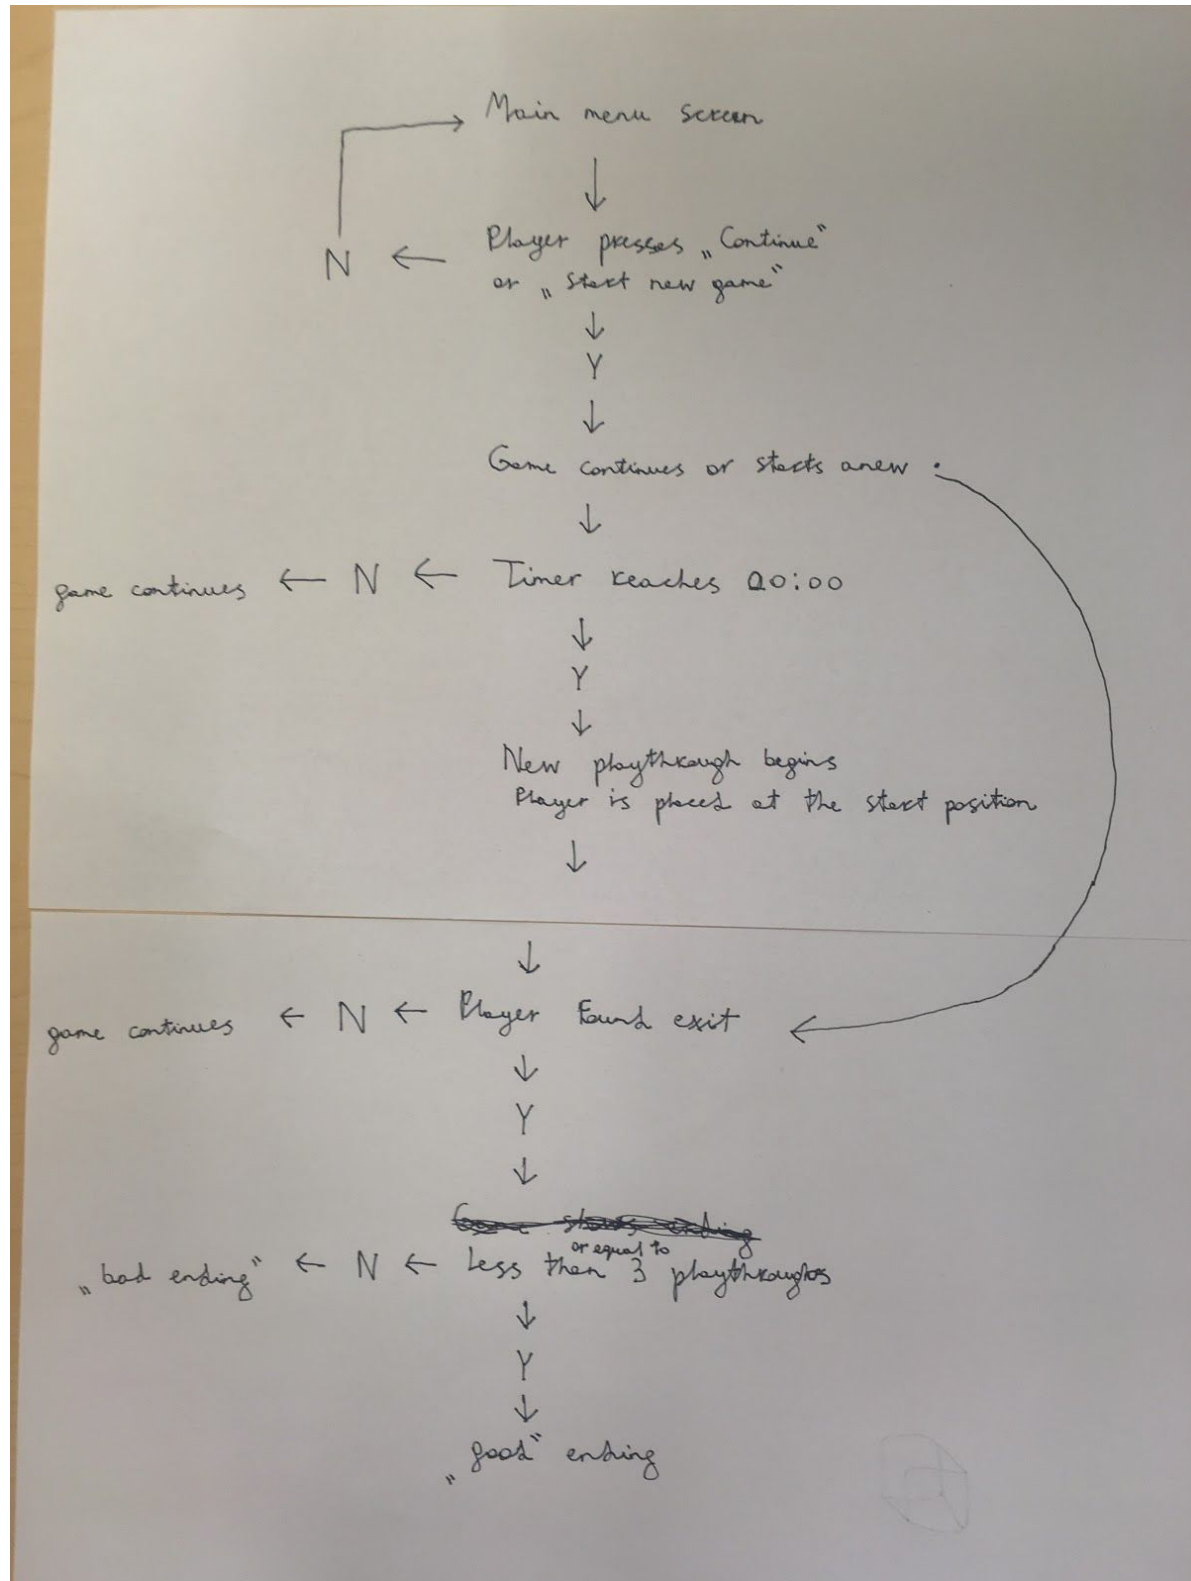 Main menu screen
N ← Player presses „Continue“
or „Start new game“
Y
Game continues or starts anew
game continues ← N ← Timer reaches 00:00
Y
New playthrough begins
Player is placed at the start position
game continues ← N ← Player Found exit
Y
Game shows ending
or equal to
„bad ending“ ← N ← Less then 3 playthroughs
Y
„good“ ending